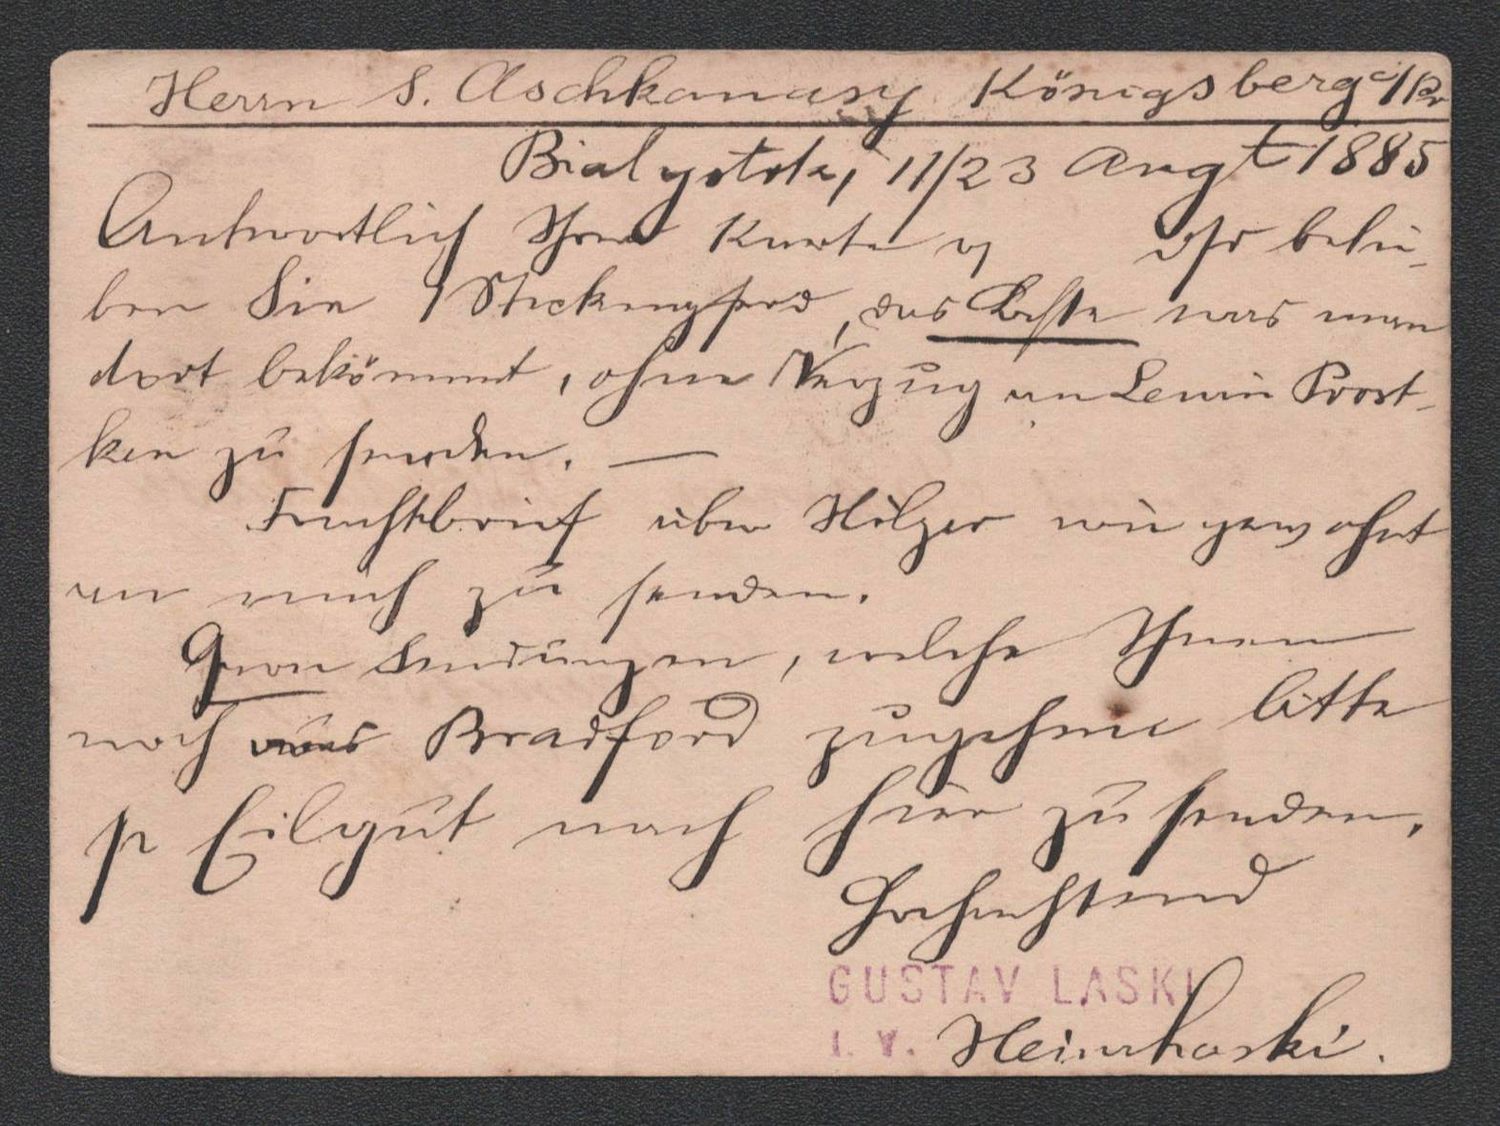 Herrn S. Aschkanasy Königsberg i/Pr
Bialystok, 11/23 Augt 1885
Antwortlich Ihrer Karte v dfs belie-
ben Sie 1 Steckengpferd, das Beste was man
dort bekömmt, ohne Verzug an Lewin Prost-
ken zu senden. —
Frachtbrief über Hölzer wie gewohnt
an mich zu senden.
Sendungen, welche Ihnen
noch aus Bradford zugehen bitte
p Eilgut nach hier zu senden.
Hochachtend
GUSTAV LASKI
I. V.